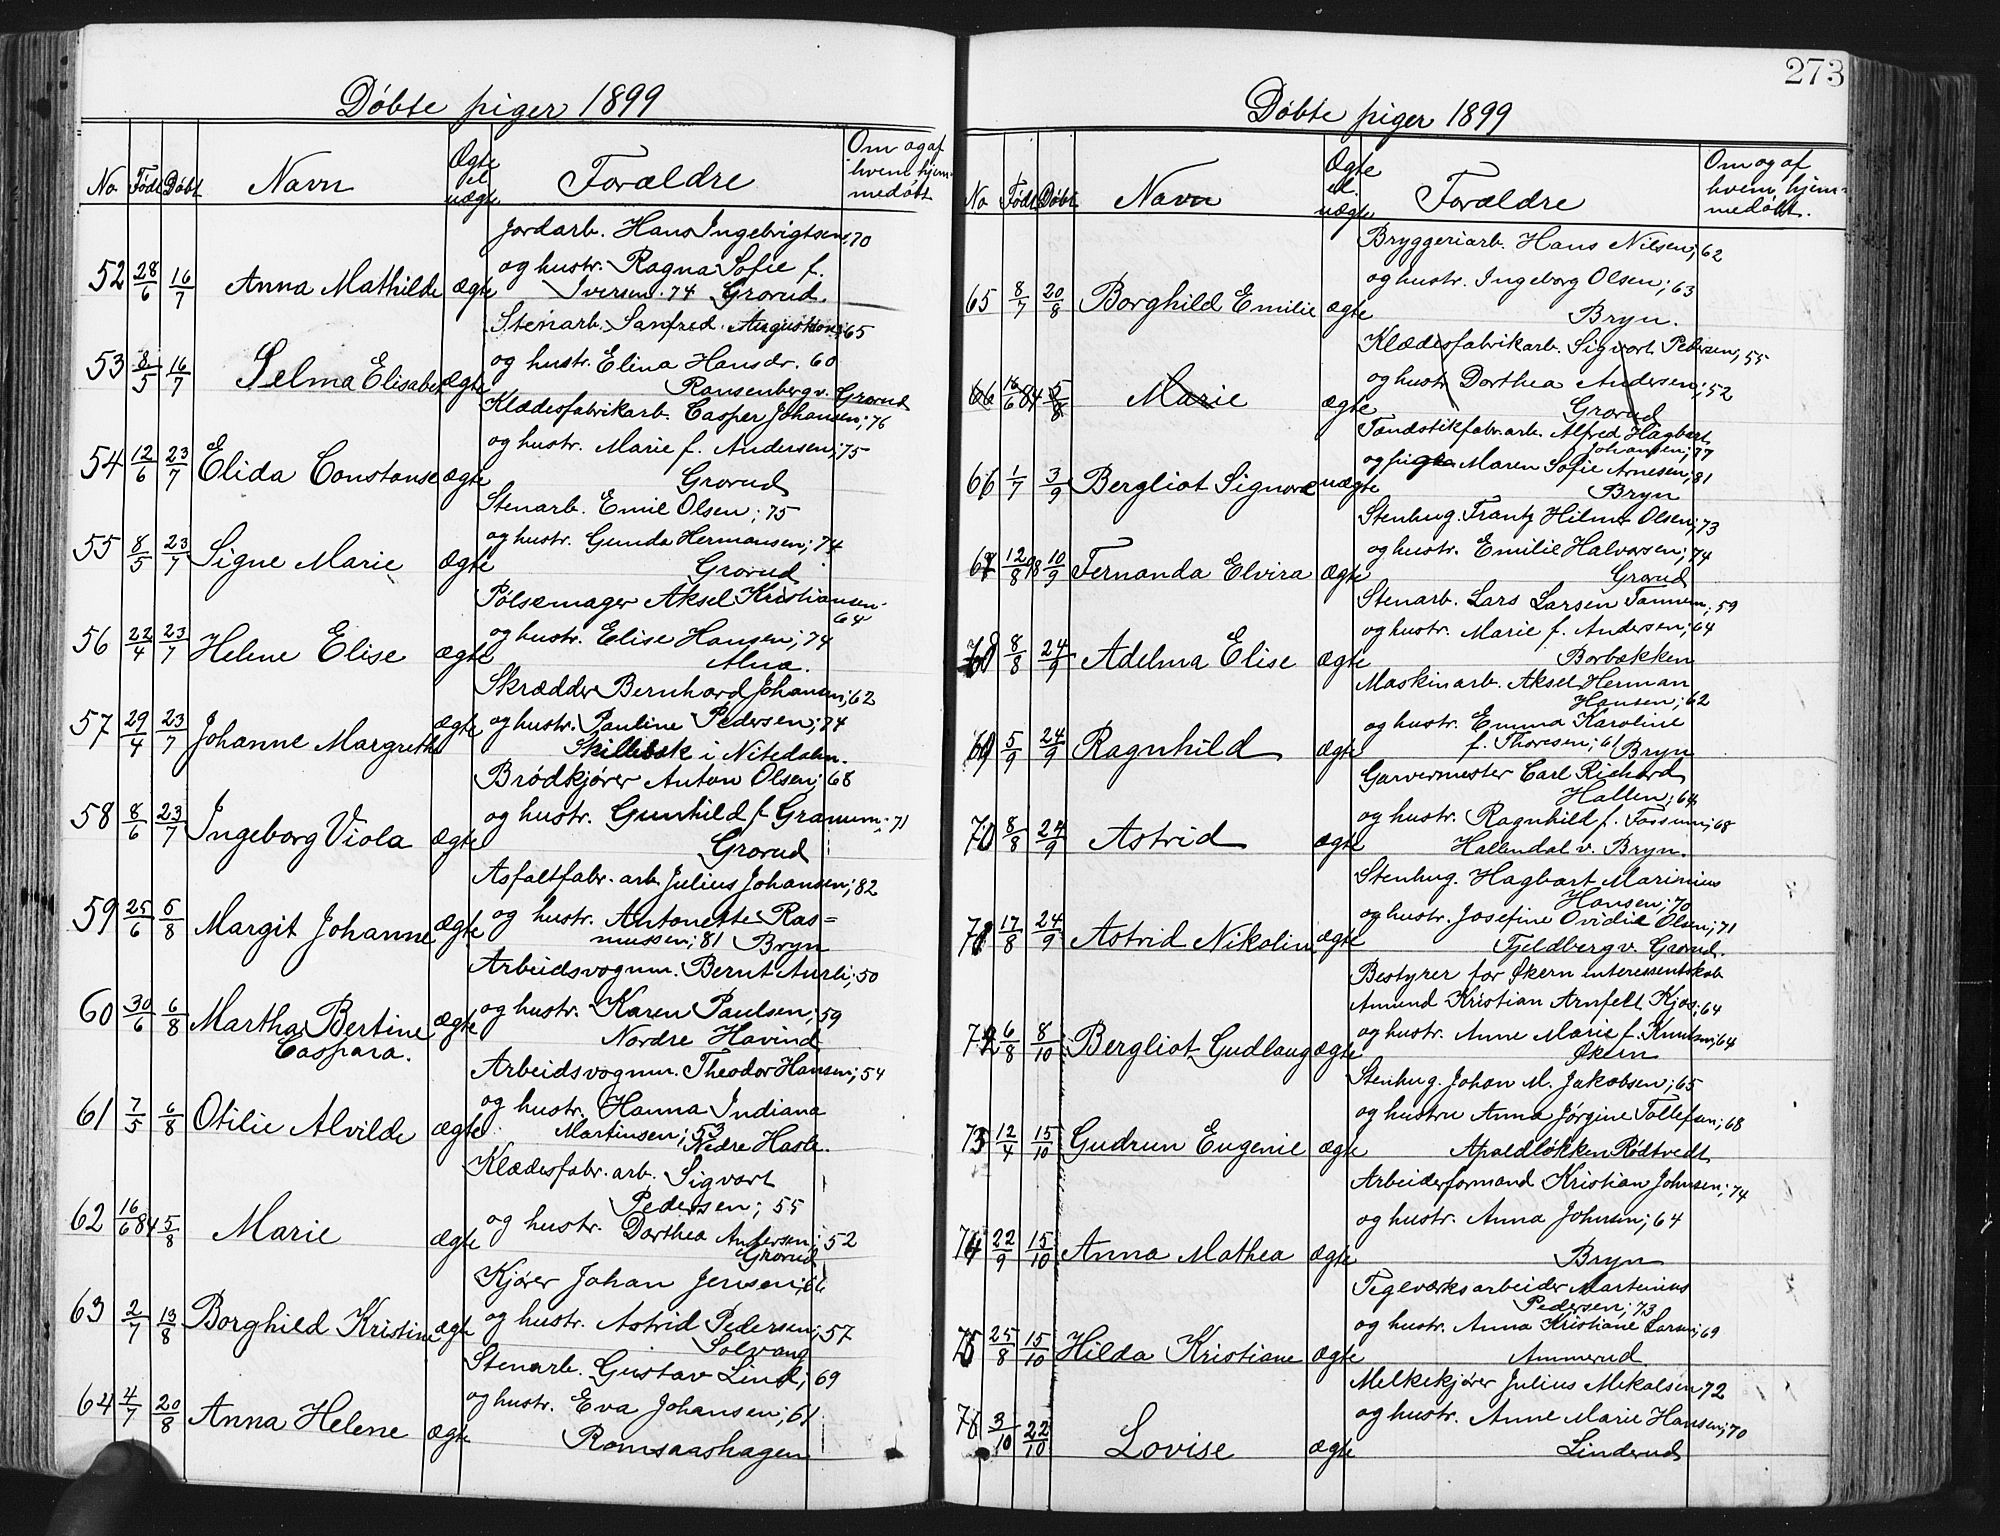 Døbte piger 1899
No Født Døbt Navn Ægte el. uægte Forældre Om og af hvem hjemmedøbt
Jordarb. Hans Ingebrigtsen; 70
og hustr. Ragna Sofie f.
52 28/6 16/7 Anna Mathilde ægte Iversen. 74 Grorud.
Stenarb. Sanfred Augustson; 65
53 8/5 16/7 Selma Elisabet ægte og hustr. Elina Hansdr. 60
Ransenberg v. Grorud
Klædesfabrikarb. Casper Johansen; 76
og hustr. Marie f. Andersen; 75
54 12/6 23/7 Elida Constanse ægte Grorud
Stenarb. Emil Olsen; 75
55 8/5 23/7 Signe Marie ægte og hustr. Gunda Hermansen; 74
Grorud
Pølsemager Aksel Kristiansen
64
56 22/4 23/7 Helene Elise ægte og hustr. Elise Hansen; 74
Alna.
Skrædder Bernhard Johansen; 62
57 29/4 23/7 Johanne Margrethe ægte og hustr. Pauline Pedersen; 74
Skillebæk i Nitedalen.
Brødkjører Anton Olsen; 68
58 8/6 23/7 Ingeborg Viola ægte og hustr. Gunhild f. Granum; 71
Grorud
Asfaltfabr. arb. Julius Johansen; 82
59 25/6 6/8 Margit Johanne ægte og hustr. Antonette Ras=
mussen; 81 Bryn
Arbeidsvognm. Bernt Aurli; 50
60 30/6 6/8 Martha Bertine ægte og hustr. Karen Paulsen; 59
Caspara. Nordre Hovind
Arbeidsvognm. Theodor Hansen; 54
61 7/5 6/8 Otilie Alvilde ægte og hustr. Hanna Indiana
Martinsen; 53
Nedre Hasle.
Klædesfabr. arb. Sigvart
Pedersen; 55
62 16/6 84 5/8 Marie ægte og hustr. Dorthea Andersen; 52
Grorud
Kjører Johan Jensen; 66
63 2/7 13/8 Borghild Kristine ægte og hustr. Astrid Pedersen; 57
Solvang
Stenarb. Gustav Lind; 69
64 4/7 20/8 Anna Helene ægte og hustr. Eva Johansen; 61
Romsaashagen
273
Døbte piger 1899
No Født Døbt Navn Ægte el. uægte Forældre Om og af hvem hjemmedøbt.
Bryggeriarb. Hans Nilsen; 62
og hustr. Ingeborg Olsen; 63
65 8/7 20/8 Borghild Emilie ægte Bryn.
Klædesfabrikarb. Sigvart Pedersen; 55
66 16/6 84 5/8 Marie ægte og hustr. Dorthea Andersen; 52
Grorud
Tændstikfabr. arb. Alfred Hagbart
Johansen; 77
66 1/7 3/9 Bergliot Signora uægte og pige Maren Sofie Arnesen; 81
Bryn
Stenhug. Frantz Hilmar Olsen; 73
67 12/8 98 10/9 Fernanda Elvira ægte og hustr. Emilie Halvorsen; 74
Grorud
Stenarb. Lars Larsen Tannum; 59
68 8/8 24/9 Adelma Elise ægte og hustr. Marie f. Andersen; 64
Borbækken
Maskinarb. Aksel Herman
Hansen; 62
69 5/9 24/9 Ragnhild ægte og hustr. Emma Karoline
f. Thoresen; 61 Bryn
Garvermester Carl Richard
Hallen; 64
70 8/8 24/9 Astrid ægte og hustr. Ragnhild f. Fossum; 68
Hallendal v. Bryn.
Stenhug. Hagbart Marinius
Hansen; 70
71 17/8 24/9 Astrid Nikolin ægte og hustr. Josefine Ovidie Olsen; 71
Fjeldberg v. Grorud.
Bestyrer for Økern interessentskab
Amund Kristian Arnfelt Kjos; 64
72 6/8 8/10 Bergliot Gudlaug ægte og hustr. Anne Marie f. Knutsen; 64
Økern
Stenhug. Johan M. Jakobsen; 65
73 12/4 15/10 Gudrun Eugenie ægte og hustru Anna Jørgine Tollefsen; 68
Apaldløkken Rødtvedt
Arbeiderformand Kristian Johnsen; 74
og hustr. Anna Johnsen; 64
74 22/9 15/10 Anna Mathea ægte Bryn
Teglværksarbeider Martinius
Pedersen; 73
75 25/8 15/10 Hilda Kristiane ægte og hustr. Anna Kristiane Larsen; 69
Ammerud
Melkekjører Julius Mikalsen 72
76 3/10 22/10 Lovise ægte og hustr. Anne Marie Hansen; 70
Linderud